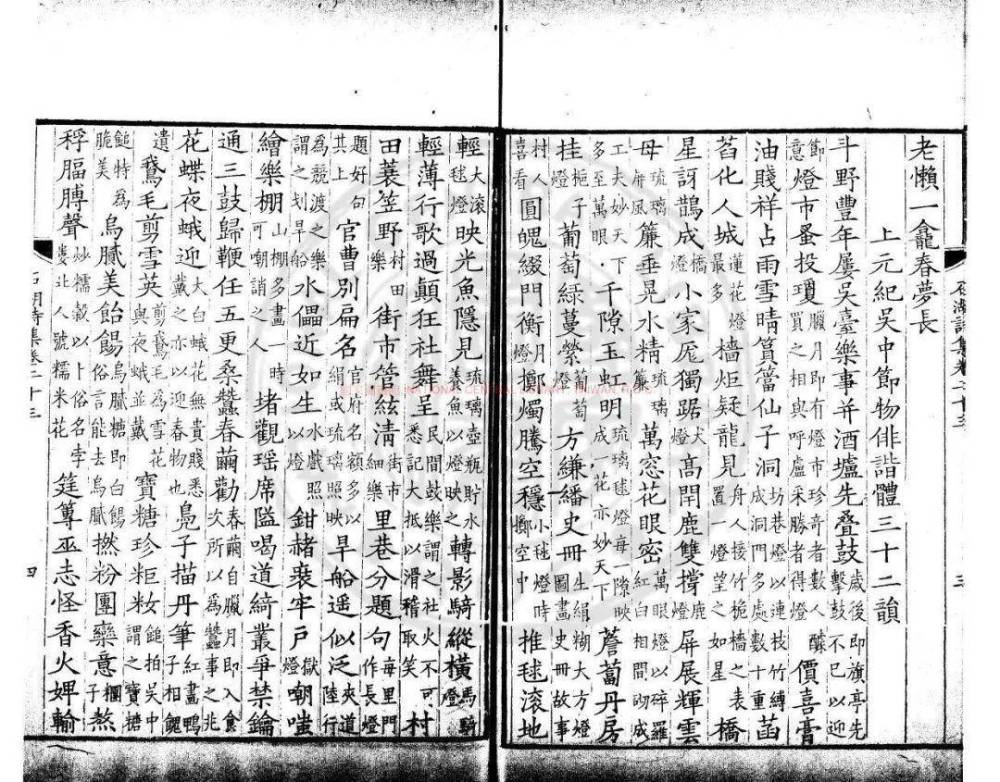 老懶一龕春夢長
上元紀吳中節物俳諧體三十二韻
斗野豐年屢吳臺樂事并酒壚先疊鼓歲後即旗亭先擊鼓不已以迎
節意燈市蚤投瓊臘月即有燈市珍奇者數人醵買之相與呼盧采勝者得燈價喜膏
油賤祥占雨雪晴篔簹仙子洞坊巷燈以連枝竹成洞門多處數十重菡
萏化人城蓮花燈最多檣炬疑龍見舟人接竹桅檣之表置一燈望之如星橋
星訝鵲成橋燈小家厖獨踞犬燈高閈鹿雙撐鹿燈屏展輝雲
母琉璃屏風簾垂晃水精琉璃簾萬窓花眼密萬眼燈以碎羅紅白相間砌成
工夫妙天下多至萬眼千隙玉虹明琉璃毬燈每一隙映成一花亦妙天下薝蔔丹房
桂梔子燈葡萄綠蔓縈葡萄燈方縑繙史冊生絹糊大方燈圖畫史冊故事
村人喜看圓魄綴門衡月燈擲燭騰空穩小毬燈時擲空中推毬滾地
輕大滾毬燈映光魚隱見琉璃壺瓶貯水養魚以燈映之轉影騎縱橫馬騎燈
輕薄行歌過顛狂社舞呈民間鼓樂謂之社火不可悉記大抵以滑稽取笑村
田蓑笠野村田樂街市管絃清街市細樂里巷分題句每里門作長燈
題好句其上官曹別扁名官府名額多以絹或琉璃照映旱船遥似泛夾道陸行
爲競渡之樂謂之划旱船水儡近如生水戲照以燈鉗赭裝牢戶獄燈嘲嗤
繪樂棚山棚多畫一時可嘲誚之人堵觀瑶席隘喝道綺叢爭禁鑰
通三鼓歸鞭任五更桑蠶春繭勸春繭自臘月即入食次所以爲蠶事之兆
花蝶夜蛾迎大白蛾花無貴賤悉戴之亦以迎春物也鳧子描丹筆紅畫鴨子相餽
遺鵞毛剪雪英剪鵞毛爲雪花與夜蛾並戴寶糖珍粔籹鎚拍吳中謂之寶糖
鎚特爲脆美烏膩美飴餳烏膩糖即白餳俗言能去烏膩撚粉團欒意團子熬
稃腷膊聲炒糯穀以卜俗名孛婁北人號糯米花筳篿巫志怪香火婢輸
石湖詩集卷二十三
三
石湖詩集卷二十三
四